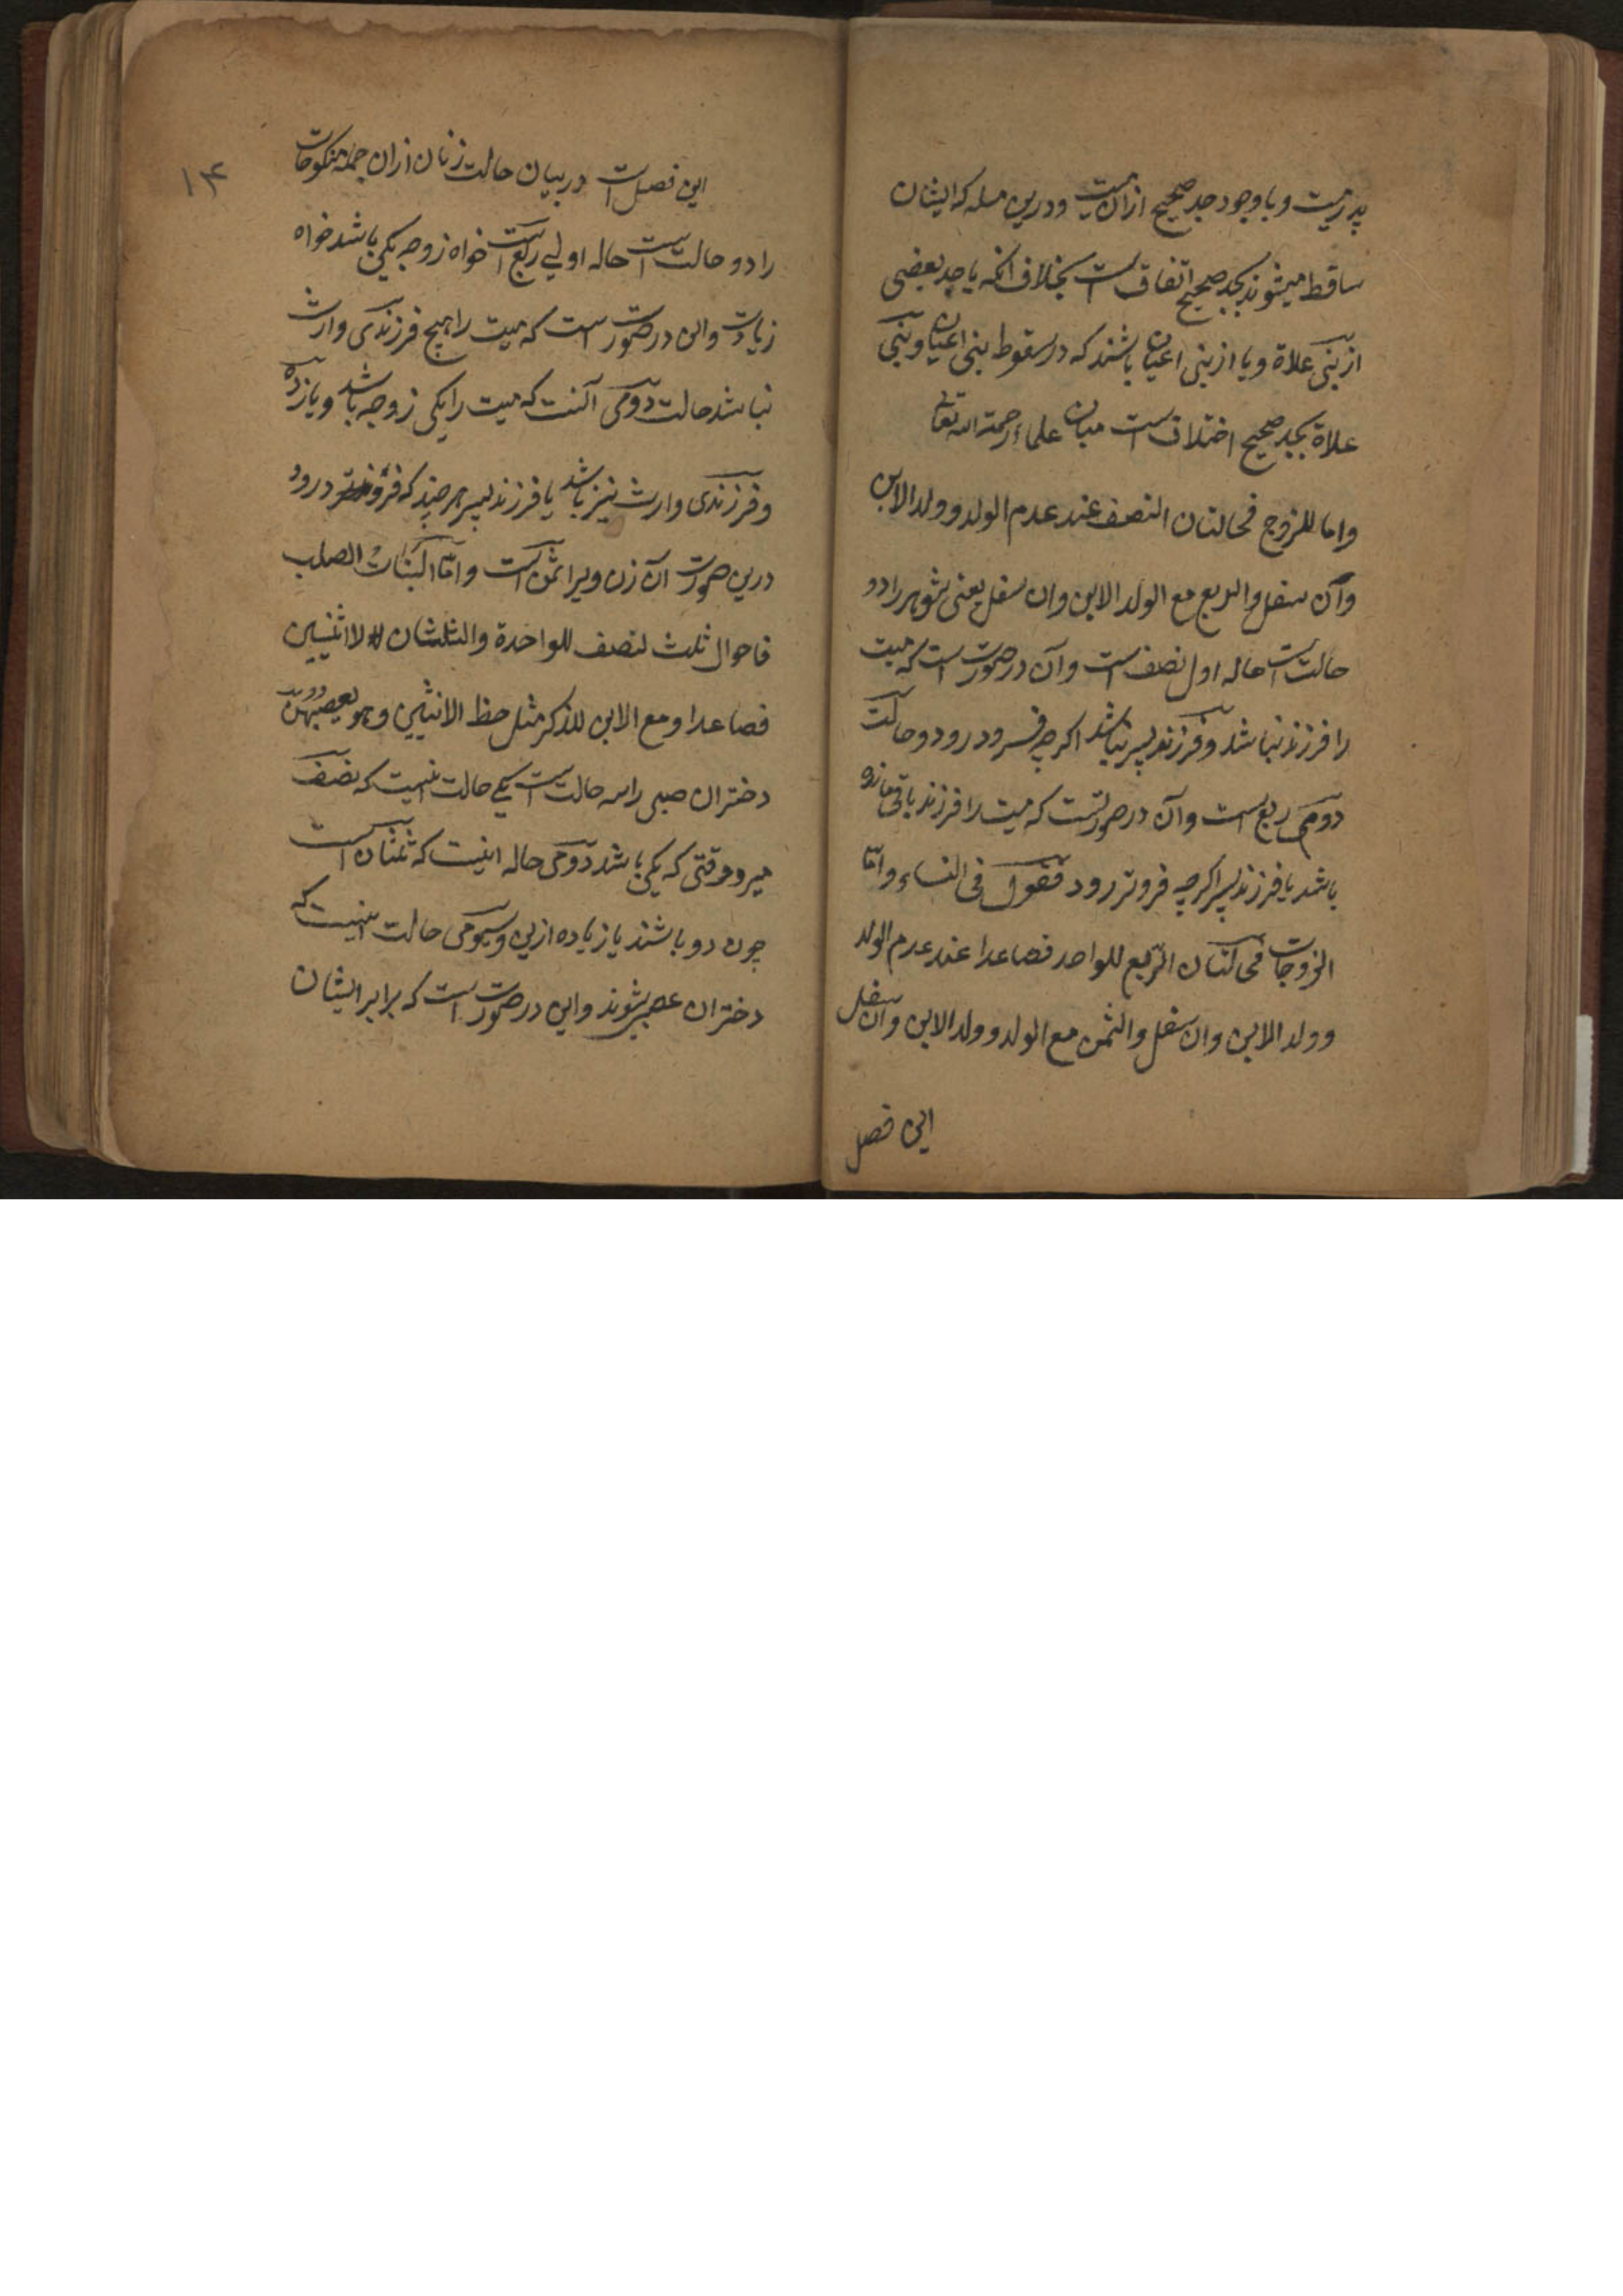 پدر میت و با وجود جد صحیح ازان میت و درین مسله که ایشان
ساقط میشوند بجد صحیح اتفاق است بخلاف انکه با جد بعضی
از بنی علاة و یا از بنی اعیان باشند که در سقوط بنی اعیان و بنی
علاة بجد صحیح اختلاف است میان علماء رحمة الله تعالی
واما للزوج فحالتان النصف عند عدم الولد وولد الابن
وان سفل والربع مع الولد الابن وان سفل یعنی شوهر را دو
حالت است حاله اول نصف است وآن در صورت است که میت
را فرزند نباشد و فرزند پسر نباشد اکرچه فرود رود و حالت
دومی ربع است وآن در صورتست که میت را فرزند باقی مانده
باشد یا فرزند پسر اکرچه فروتر رود فصول فی النساء واما
الزوجات فحالتان الربع للواحد فصاعدا عند عدم الولد
وولد الابن وان سفل والثمن مع الولد وولد الابن وان سفل
این فصل
۱۳
این فصل است در بیان حالت زنان ازان جمله منکوحات
را دو حالت است حاله اولی ربع است خواه زوجه یکی باشد خواه
زیادت واین در صورت است که میت را هیچ فرزندی وارث
نباشد حالت دومی آنست که میت را یکی زوجه باشد ویا زیاده
و فرزندی وارث نیز باشد یا فرزند پسر هر چند که فروتر رود
درین صورت آن زن ویرا ثمن است واما البنات الصلب
فاحوال ثلث لنصف للواحدة والثلثان لا اثنیین
فصاعدا ومع الابن للذکر مثل حظ الانثیین وهو یعصبهن
دختران صبی را سه حالت است یکی حالت اینست که نصف
میر و وقتی که یکی باشد دومی حاله اینست که ثلثان است
چون دو باشند یا زیاده ازین وسیومی حالت اینست که
دختران عصبه شوند واین در صورت است که برابر ایشان